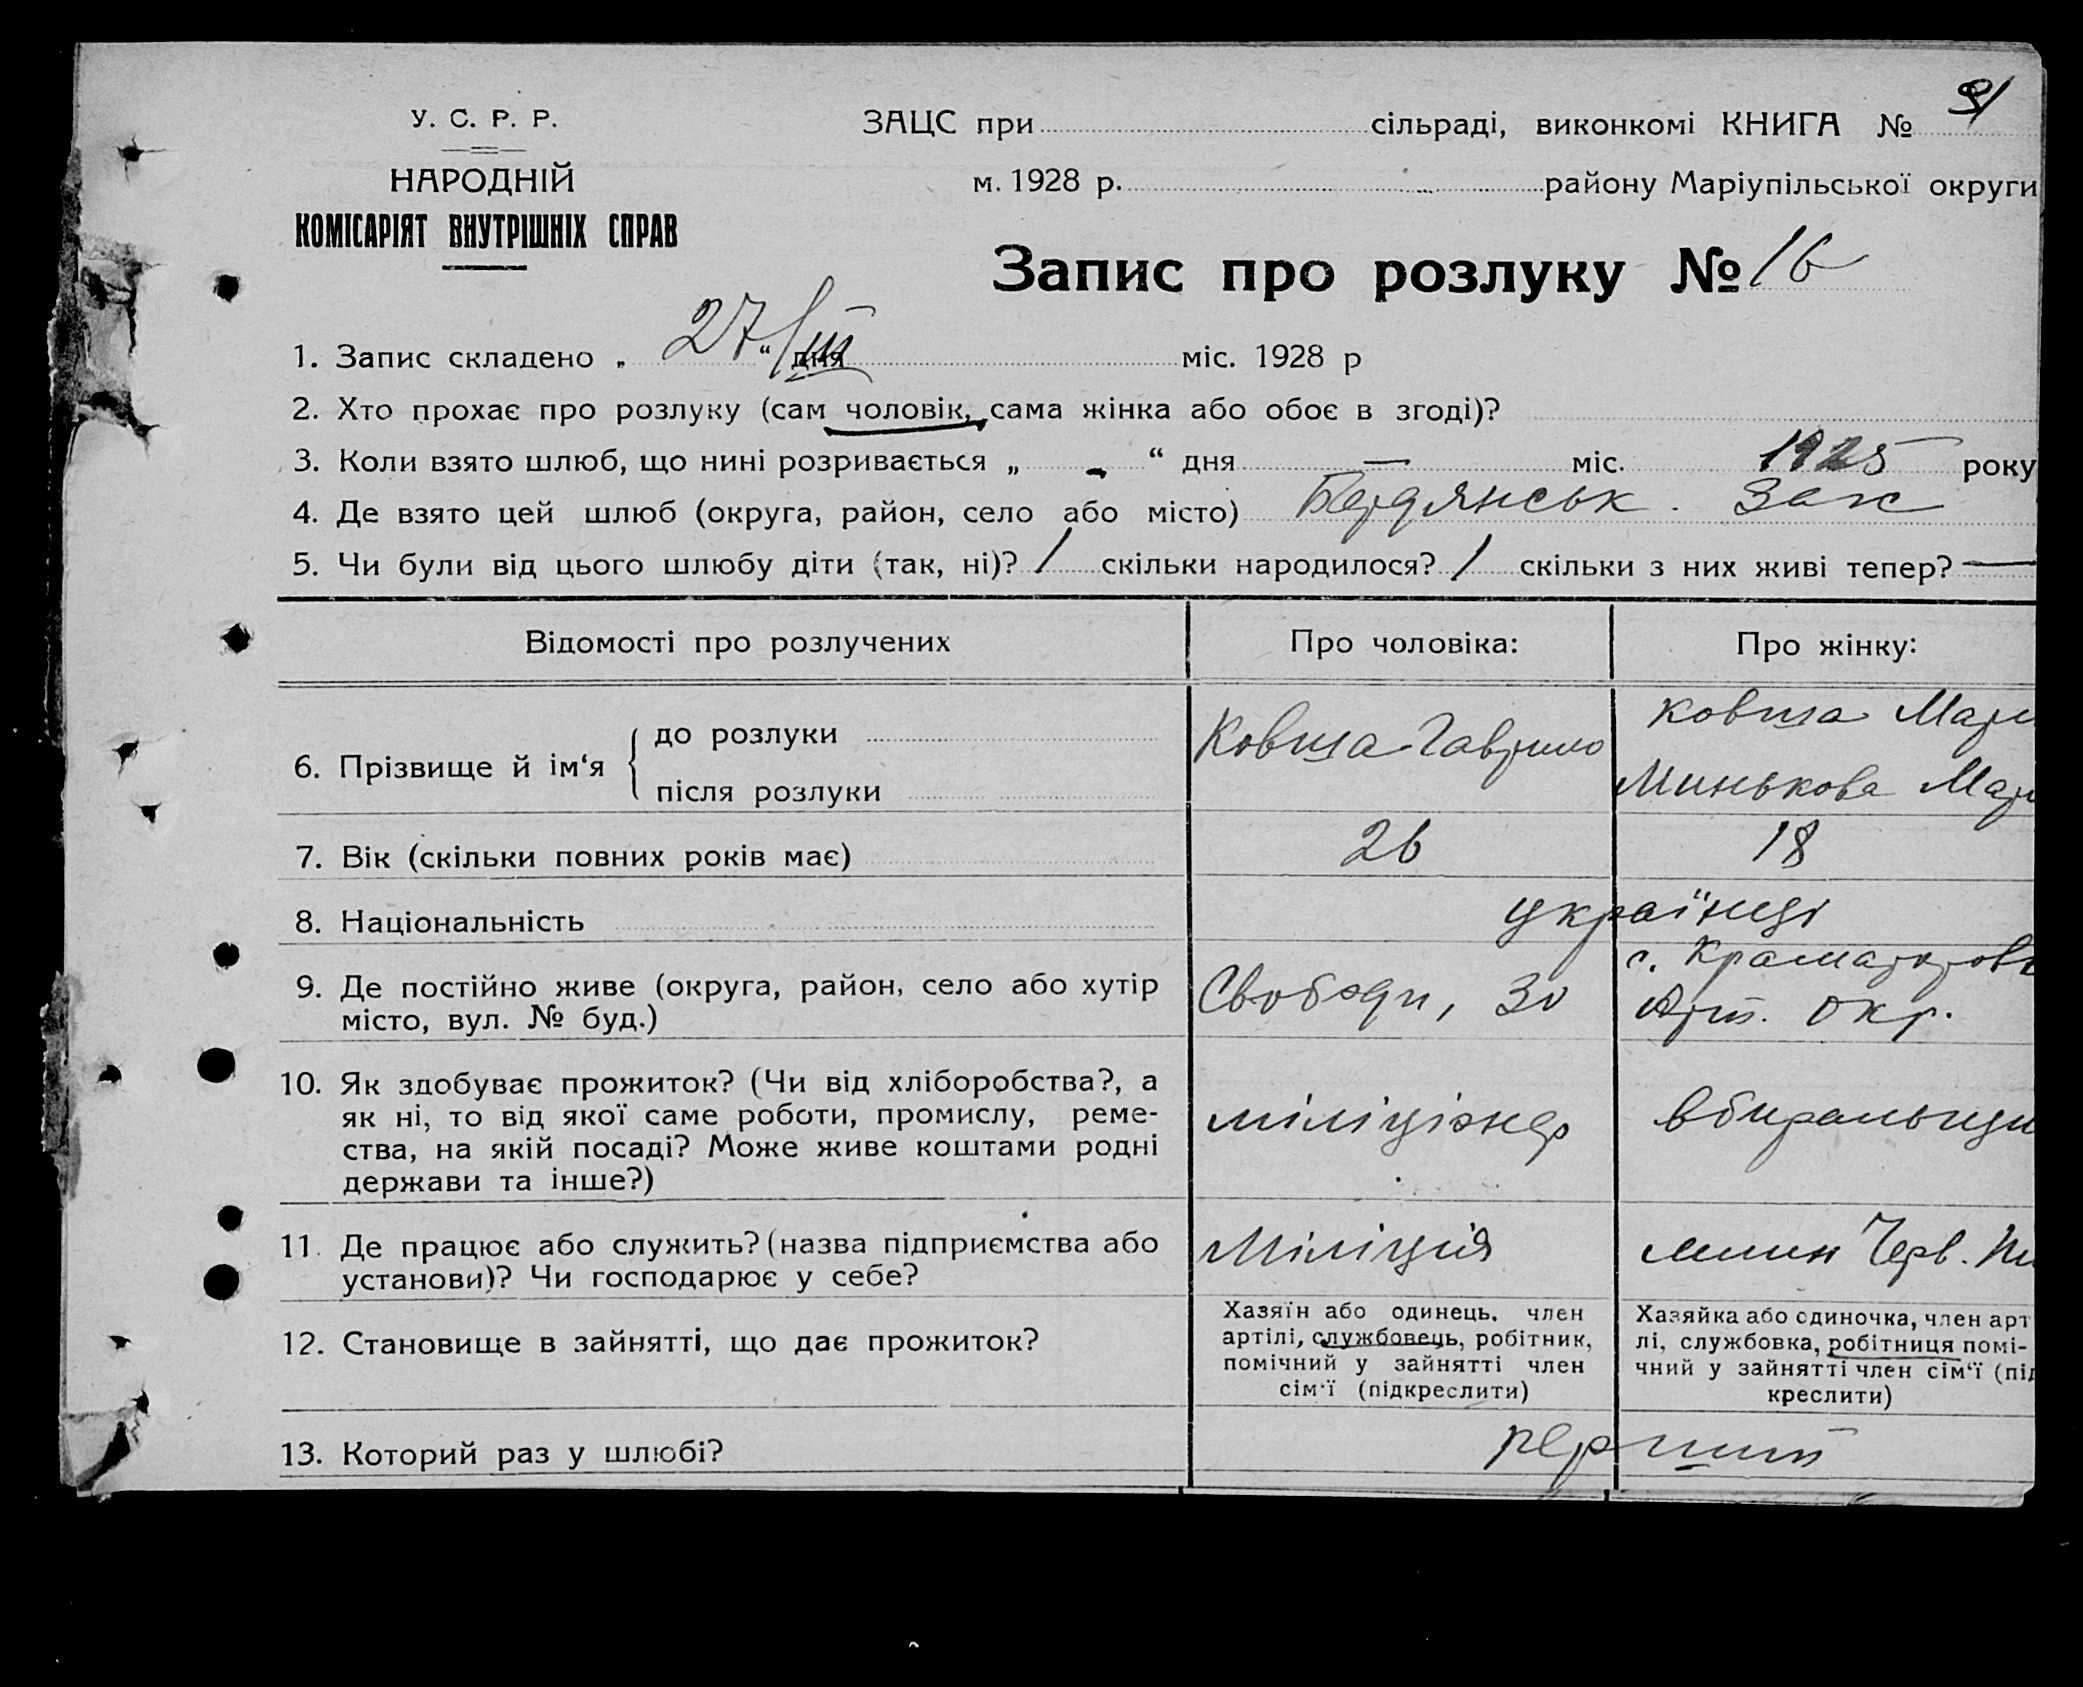 У. С. Р. Р.
НАРОДНІЙ
КОМІСАРІЯТ ВНУТРІШНІХ СПРАВ
ЗАЦС при сільраді, виконкомі КНИГА №
м. 1928 р. району Маріупільської округи
Запис про розлуку № 16
1. Запис складено „ 27/III “ дня міс. 1928 р
2. Хто прохає про розлуку (сам чоловік, сама жінка або обоє в згоді)?
3. Коли взято шлюб, що нині розривається „ - “ дня — міс. 1925 року
4. Де взято цей шлюб (округа, район, село або місто) Бердянськ. Загс
5. Чи були від цього шлюбу діти (так, ні)? 1 скільки народилося? 1 скільки з них живі тепер? —
Відомості про розлучених Про чоловіка: Про жінку:
6. Прізвище й ім‘я
до розлуки
після розлуки
Ковша Гаврило
Ковша Мари
Минькова Мари
7. Вік (скільки повних років має) 26 18
8. Національність українці
9. Де постійно живе (округа, район, село або хутір
місто, вул. № буд.)
Свободи, 30
с. Краматоров
Арт. окр.
10. Як здобуває прожиток? (Чи від хліборобства?, а
як ні, то від якої саме роботи, промислу, реме-
ства, на якій посаді? Може живе коштами родні
держави та інше?)
міліціонер
вбиральщи
11. Де працює або служить? (назва підприємства або
установи)? Чи господарює у себе?
Міліція
Черв.
12. Становище в зайнятті, що дає прожиток?
Хазяїн або одинець, член
артілі, службовець, робітник,
помічний у зайнятті член
сім‘ї (підкреслити)
Хазяйка або одиночка, член арт
лі, службовка, робітниця помі-
чний у зайнятті член сім‘ї (під
креслити)
13. Которий раз у шлюбі? перший